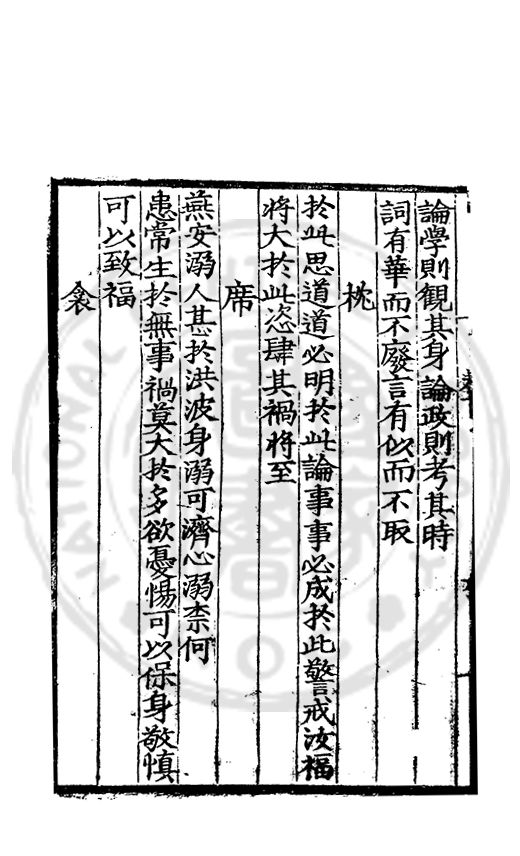 論學則觀其身論政則考其時
詞有華而不廢言有似而不取
枕
扵此思道道必明扵此論事事必成扵此警戒汝福
將大扵此恣肆其禍將至
席
燕安溺人甚扵洪波身溺可濟心溺柰何
患常生扵無事禍莫大扵多欲憂惕可以保身敬慎
可以致福
衾